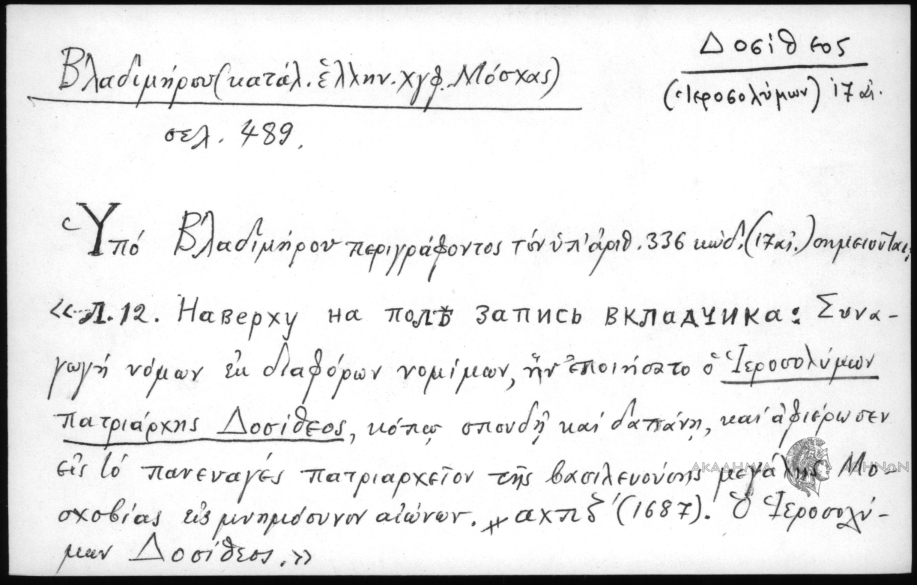 Δοσίθεος
(Ἱεροσολύμων) 17 αἰ.
Βλαδιμήρου (κατάλ. ἑλλην. χγφ. Μόσχας)
σελ. 489.
Ὑπό Βλαδιμήρου περιγράφοντος τόν ὑπ' ἀριθ. 336 κώδ. (17 αἰ.) σημειοῦται,
«Л. 12. Наверху на полѣ запись вкладчика: Συνα-
γωγή νόμων ἐκ διαφόρων νομίμων, ἥν ἐποιήσατο ὁ Ἱεροσολύμων
πατριάρχης Δοσίθεος, κόπῳ σπουδῇ καί δαπάνῃ, καί ἀφιέρωσεν
εἰς τό παναγές πατριαρχεῖον τῆς βασιλευούσης μεγάλης Μο-
σχοβίας εἰς μνημόσυνον αἰώνων. ͵αχπζ΄ (1687). Ὁ Ἱεροσολύ-
μων Δοσίθεος.»
ΑΚΑΔΗΜΙΑ ΑΘΗΝΩΝ